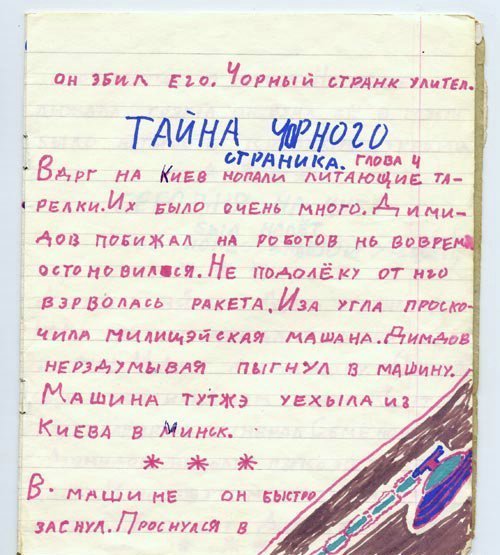 он збил его. Чорный странк улител.
ТАЙНА ЧОРНОГО
СТРАНИКА. ГЛОВА 4
Вдрг на Киев нопали литающие та-
релки. Их было очень много. Дими-
дов побижал на роботов нь воврем
остоновился. Не подолёку от нго
взрволась ракета. Иза угла проско-
чила милищэйская машана. Димдов
нерздумывая пыгнул в машину.
Машина тутжэ уехыла из
Киева в Минск.
* * *
В. машине он быстро
заснул. Проснулся в